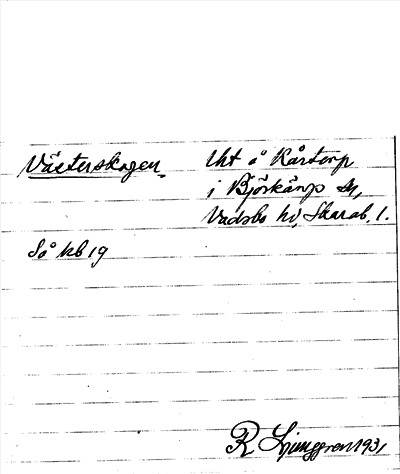 Västerskogen. Uht å Kårtorp
i Björkäng sn,
Vadsbo hd, Skarab. l.
Så kb 19
R Ljunggren 1931